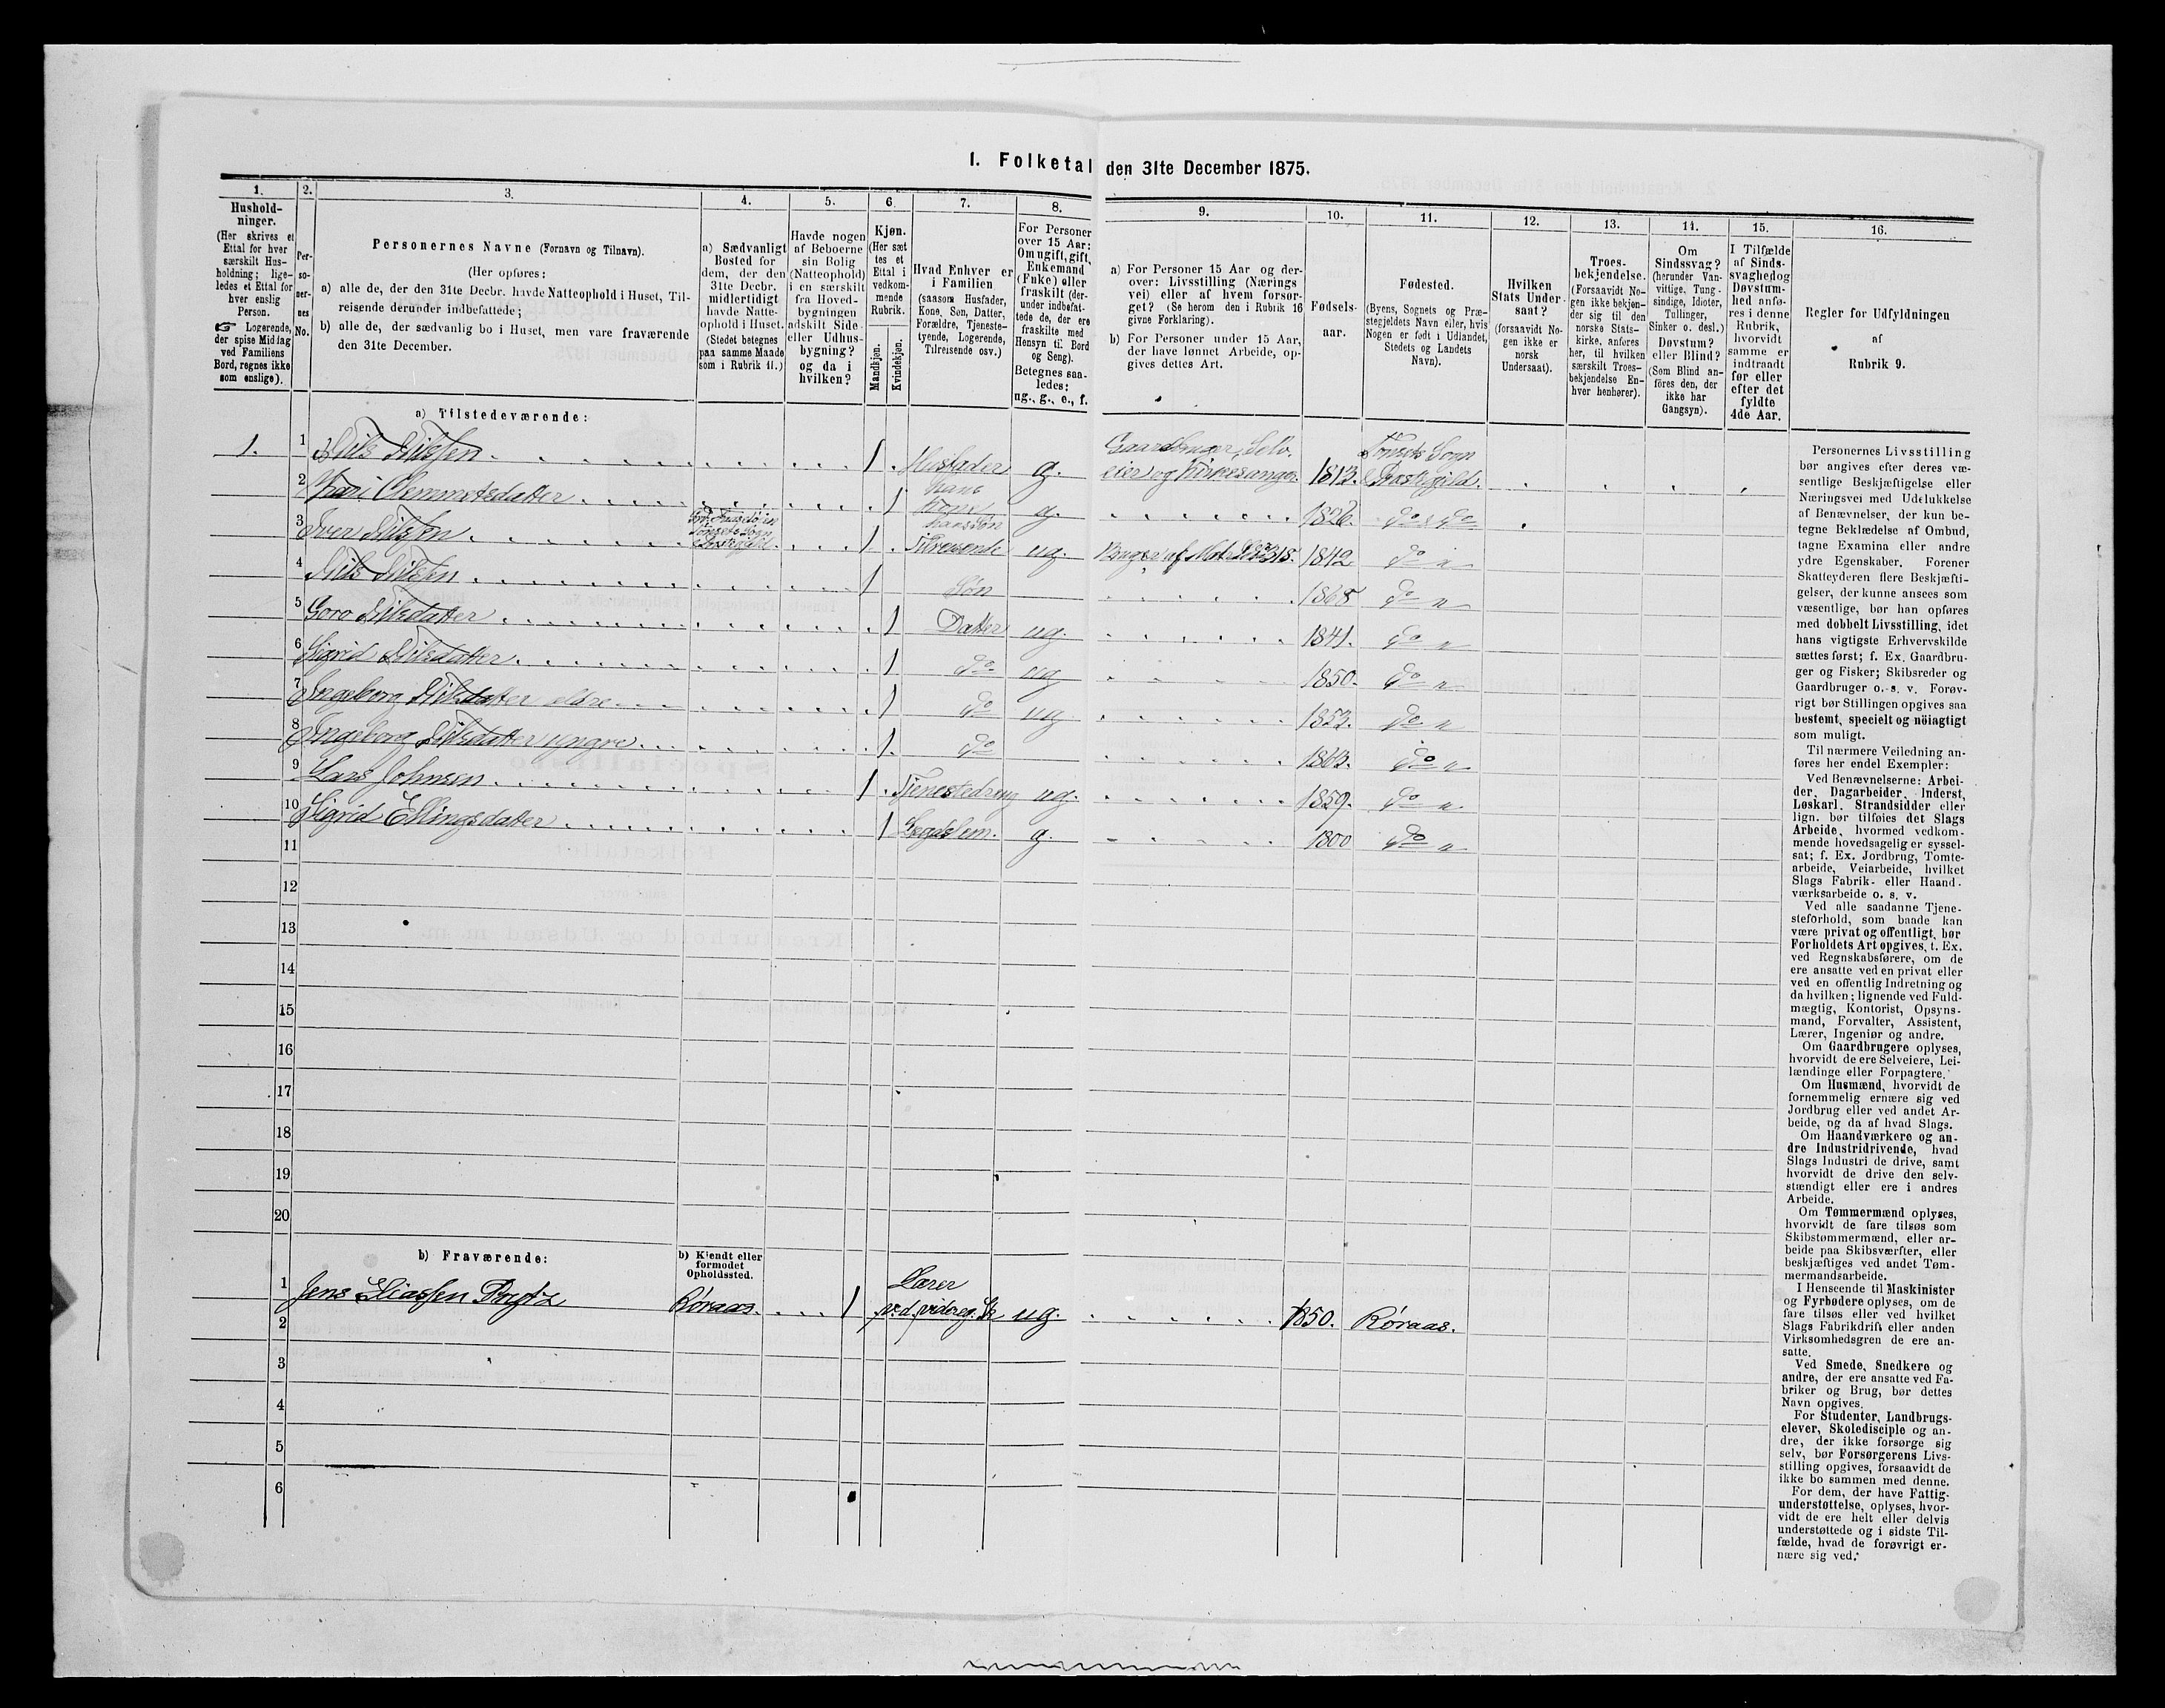 1. Folketal den 31te December 1875.
1. 2. 3. 4. 5. 6. 7. 8. 9. 10. 11. 12. 13. 14. 15. 16.
Hushold-
ninger.
(Her skrives et
Ettal for hver
særskilt Hus-
holdning; lige-
ledes et Ettal for
hver enslig
Person.
☞ Logerende,
der spise Middag
ved Familiens
Bord, regnes ikke
som enslige).
Per-
so-
ner-
nes
No.
Personernes Navne (Fornavn og Tilnavn).
(Her opføres:
a) alle de, der den 31te Decbr. havde Natteophold i Huset, Til-
reisende derunder indbefattede;
b) alle de, der sædvanlig bo i Huset, men vare fraværende
den 31te December.
a) Sædvanligt
Bosted for
dem, der den
31te Decbr.
midlertidigt
havde Natte-
ophold i Huset.
(Stedet betegnes
paa samme Maade
som i Rubrik 11.)
Havde nogen
af Beboerne
sin Bolig
(Natteophold)
i en særskilt
fra Hoved-
bygningen
adskilt Side-
eller Udhus-
bygning?
og da i
hvilken?
Kjøn.
(Her sæt
tes et
Ettal i
vedkom-
mende
Rubrik.
Mandkjøn.
Kvindekjøn.
Hvad Enhver er
i Familien
(saasom Husfader,
Kone, Søn, Datter,
Forældre, Tjeneste-
tyende, Logerende,
Tilreisende osv.)
For Personer
over 15 Aar:
Om ugift, gift,
Enkemand
(Enke) eller
fraskilt (der-
under indbefat-
tede de, der ere
fraskilte med
Hensyn til Bord
og Seng).
Betegnes saa-
ledes:
ug., g., e., f.
a) For Personer 15 Aar og der-
over: Livsstilling (Nærings
vei) eller af hvem forsør-
get? (Se herom den i Rubrik 16
givne Forklaring).
b) For Personer under 15 Aar,
der have lønnet Arbeide, op-
gives dettes Art.
Fødsels-
aar.
Fødested.
(Byens, Sognets og Præ-
stegjeldets Navn eller, hvis
Nogen er født i Udlandet,
Stedets og Landets
Navn).
Hvilken
Stats Under-
saat?
(forsaavidt No-
gen ikke er
norsk
Undersaat).
Troes-
bekjendelse.
(Forsaavidt No-
gen ikke bekjen-
der sig til den
norske Stats-
kirke, anføres
her, til hvilken
særskilt Troes-
bekjendelse En-
hver henhører).
Om
Sindssvag?
(herunder Van-
vittige, Tung-
sindige, Idioter,
Tullinger,
Sinker o. desl.)
Døvstum?
eller Blind?
(Som Blind an-
føres den, der
ikke har
Gangsyn).
I Tilfælde
af Sinds-
svaghed og
Døvstum-
hed anfø-
res i denne
Rubrik,
hvorvidt
samme er
indtraadt
før eller
efter det
fyldte
4de Aar.
Regler for Udfyldningen
af
Rubrik 9.
a) Tilstedeværende:
1. 1 Nils Nilssen Husfader g. Gaardbruger, Selv-
eier og Kirkesanger. 1813. Tønsets Sogn
& Præstegield.
2 Kari Clemmetsdatter 1 hans
Kone g. 1826. do & do
3 Iver Nilssen Tønsets Sogn
1 hans Søn
Tilreisende ug. 1842. do "
4 Nils Nilssen 1 Søn 1868 do "
5 Goro Nilsdatter 1 Datter ug. 1841. do "
6 Sigrid Nilsdatter 1 do ug 1850. do "
7 Ingeborg Nilsdatter eldre 1 do ug 1853. do "
8 Ingeborg Nilsdatter yngre 1. do 1863. do "
9 Lars Johnsen 1 Tjenestedreng ug. 1859. do "
10 Sigrid Ellingsdatter 1 Lægdslem. g. 1800 do "
11
12
13
14
15
16
17
18
19
20
b) Fraværende:
b) Kjendt eller
formodet
Opholdssted.
1 Jens Eliassen Røraas. 1 Lærer
ved videreg. Sk ug. 1850. Røraas.
2
3
4
5
6
Personernes Livsstilling
bør angives efter deres væ-
sentlige Beskjæftigelse eller
Næringsvei med Udelukkelse
af Benævnelser, der kun be-
tegne Beklædelse af Ombud,
tagne Examina eller andre
ydre Egenskaber. Forener
Skatteyderen flere Beskjæfti-
gelser, der kunne ansees som
væsentlige, bør han opføres
med dobbelt Livsstilling, idet
hans vigtigste Erhvervskilde
sættes først; f. Ex. Gaardbru-
ger og Fisker; Skibsreder og
Gaardbruger o. s. v. Forøv-
rigt bør Stillingen opgives saa
bestemt, specielt og nöiagtigt
som muligt.
Til nærmere Veiledning an-
føres her endel Exempler:
Ved Benævnelserne: Arbei-
der, Dagarbeider, Inderst,
Løskarl, Strandsidder eller
lign. bør tilføies det Slags
Arbeide, hvormed vedkom-
mende hovedsagelig er syssel-
sat; f. Ex. Jordbrug, Tomte-
arbeide, Veiarbeide, hvilket
Slags Fabrik- eller Haand-
værksarbeide o. s. v.
Ved alle saadanne Tjene-
steforhold, som baade kan
være privat og offentligt, bør
Forholdets Art opgives, t. Ex.
ved Regnskabsførere, om de
ere ansatte ved en privat eller
ved en offentlig Indretning og
da hvilken; lignende ved Fuld-
mægtig, Kontorist, Opsyns-
mand, Forvalter, Assistent,
Lærer, Ingeniør og andre.
Om Gaardbrugere oplyses,
hvorvidt de ere Selveiere, Lei-
lændinge eller Forpagtere.
Om Husmænd, hvorvidt de
fornemmelig ernære sig ved
Jordbrug eller ved andet Ar-
beide, og da af hvad Slags.
Om Haandværkere og an-
dre Industridrivende, hvad
Slags Industri de drive, samt
hvorvidt de drive den selv-
stændigt eller ere i andres
Arbeide.
Om Tømmermænd oplyses,
hvorvidt de fare tilsøs som
Skibstømmermænd, eller ar-
beide paa Skibsværfter, eller
beskjæftiges ved andet Tøm-
mermandsarbeide.
I Henseende til Maskinister
og Fyrbødere oplyses, om de
fare tilsøs eller ved hvilket
Slags Fabrikdrift eller anden
Virksomhedsgren de ere an-
satte.
Ved Smede, Snedkere og
andre, der ere ansatte ved Fa-
briker og Brug, bør dettes
Navn opgives.
For Studenter, Landbrugs-
elever, Skoledisciple og an-
dre, der ikke forsørge sig
selv, bør Forsørgerens Livs-
stilling opgives, forsaavidt de
ikke bo sammen med denne.
For dem, der have Fattig-
understøttelse, oplyses, hvor-
vidt de ere helt eller delvis
understøttede og i sidste Til-
fælde, hvad de forøvrigt er-
nære sig ved.